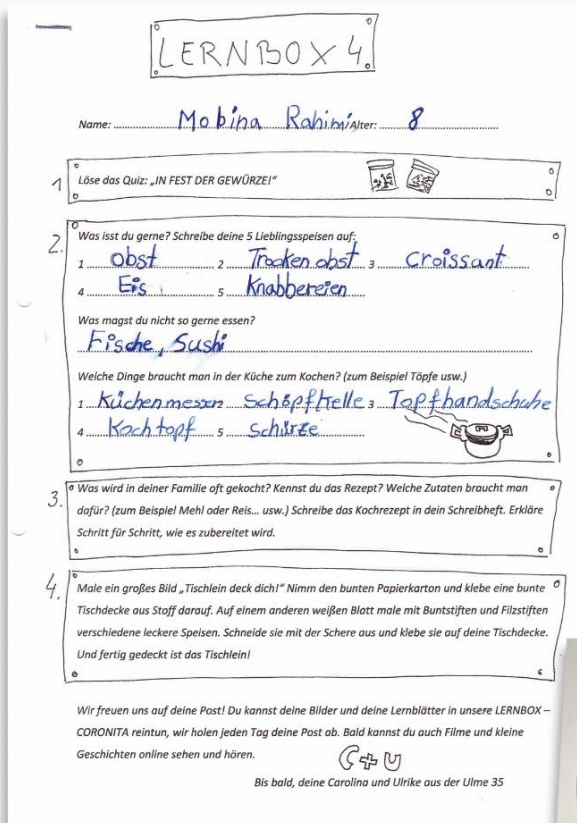 LERNBOX 4
Name: Mobina Rahimi Alter: 8
1 Löse das Quiz: „IN FEST DER GEWÜRZE!"
2. Was isst du gerne? Schreibe deine 5 Lieblingsspeisen auf:
1 obst 2 Trocken obst 3 Croissant
4 Eis 5 Knabbereien
Was magst du nicht so gerne essen?
Fische, Sushi
Welche Dinge braucht man in der Küche zum Kochen? (zum Beispiel Töpfe usw.)
1 Küchenmesser 2 Schöpfkelle 3 Topfhandschuhe
4 Kochtopf 5 Schürze
3. Was wird in deiner Familie oft gekocht? Kennst du das Rezept? Welche Zutaten braucht man
dafür? (zum Beispiel Mehl oder Reis... usw.) Schreibe das Kochrezept in dein Schreibheft. Erkläre
Schritt für Schritt, wie es zubereitet wird.
4. Male ein großes Bild „Tischlein deck dich!" Nimm den bunten Papierkarton und klebe eine bunte
Tischdecke aus Stoff darauf. Auf einem anderen weißen Blatt male mit Buntstiften und Filzstiften
verschiedene leckere Speisen. Schneide sie mit der Schere aus und klebe sie auf deine Tischdecke.
Und fertig gedeckt ist das Tischlein!
Wir freuen uns auf deine Post! Du kannst deine Bilder und deine Lernblätter in unsere LERNBOX –
CORONITA reintun, wir holen jeden Tag deine Post ab. Bald kannst du auch Filme und kleine
Geschichten online sehen und hören.
C+U
Bis bald, deine Carolina und Ulrike aus der Ulme 35